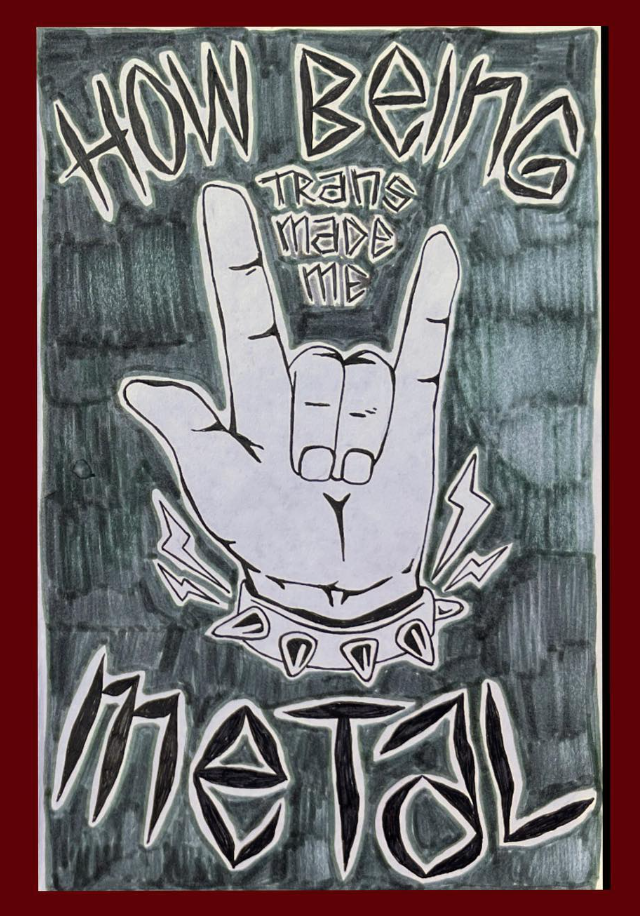 HOW BeING
Trans
made
me
meTaL